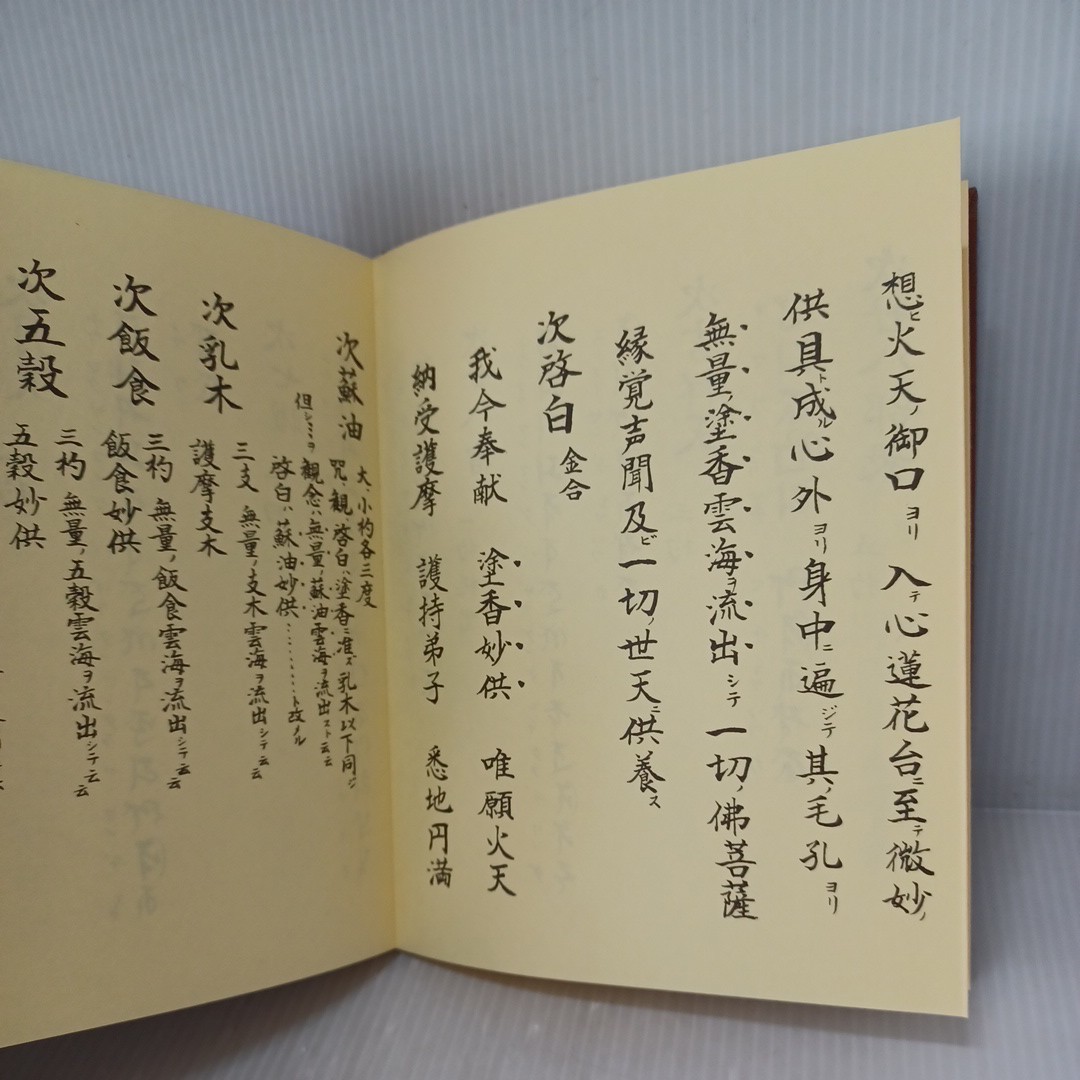 想ヒ火天ノ御口ヨリ入テ心蓮花台ニ至テ微妙ノ
供具ト成ル心外ヨリ身中ニ遍ジテ其ノ毛孔ヨリ
無量ノ塗香雲海ヲ流出シテ一切ノ佛菩薩
縁覚声聞及ビ一切ノ世天ニ供養ス
次啓白 金合
我今奉献 塗香妙供 唯願火天
納受護摩 護持弟子 悉地円満
次蘇油 大、小杓各三度
呪、観、啓白ハ塗香ニ准ズ乳木以下同ジ
但シ 観念ハ無量ノ蘇油雲海ヲ流出スト云云
啓白ハ蘇油妙供………ト改メル
次乳木 三支 無量ノ支木雲海ヲ流出シテ云云
護摩支木
次飯食 三杓 無量ノ飯食雲海ヲ流出シテ云云
飯食妙供
次五穀 三杓 無量ノ五穀雲海ヲ流出シテ云云
五穀妙供